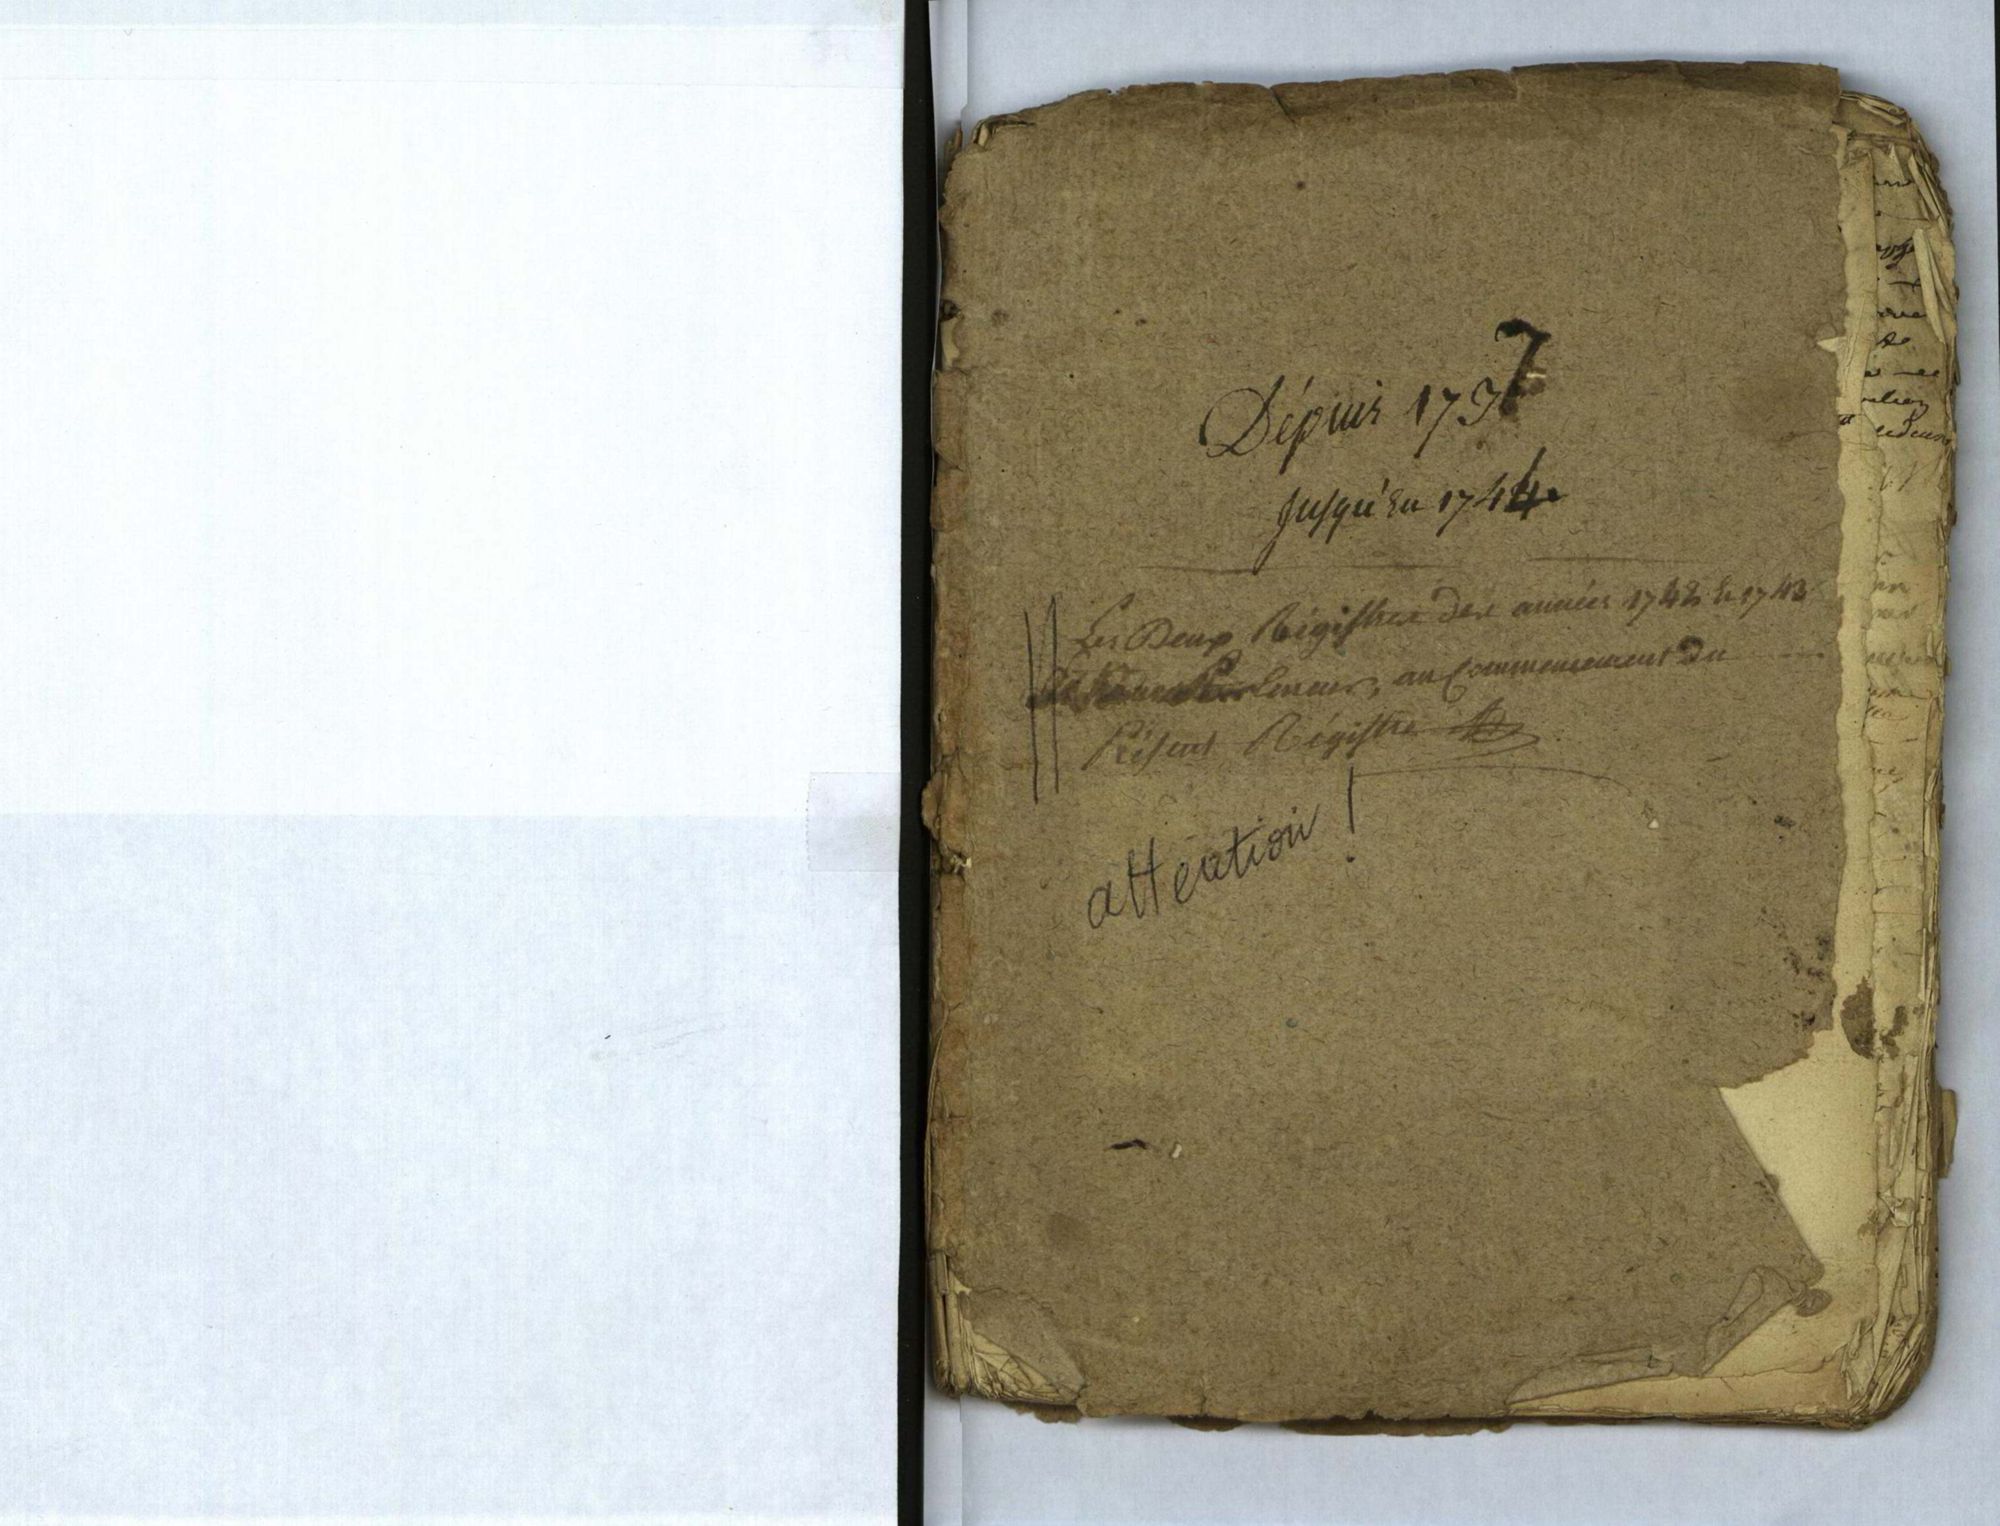 Dépuis 1737
jusqu'en 1744
Les Deux Régistres des années 1742 & 1743
au Commencement du
Présent Régistre
attention !